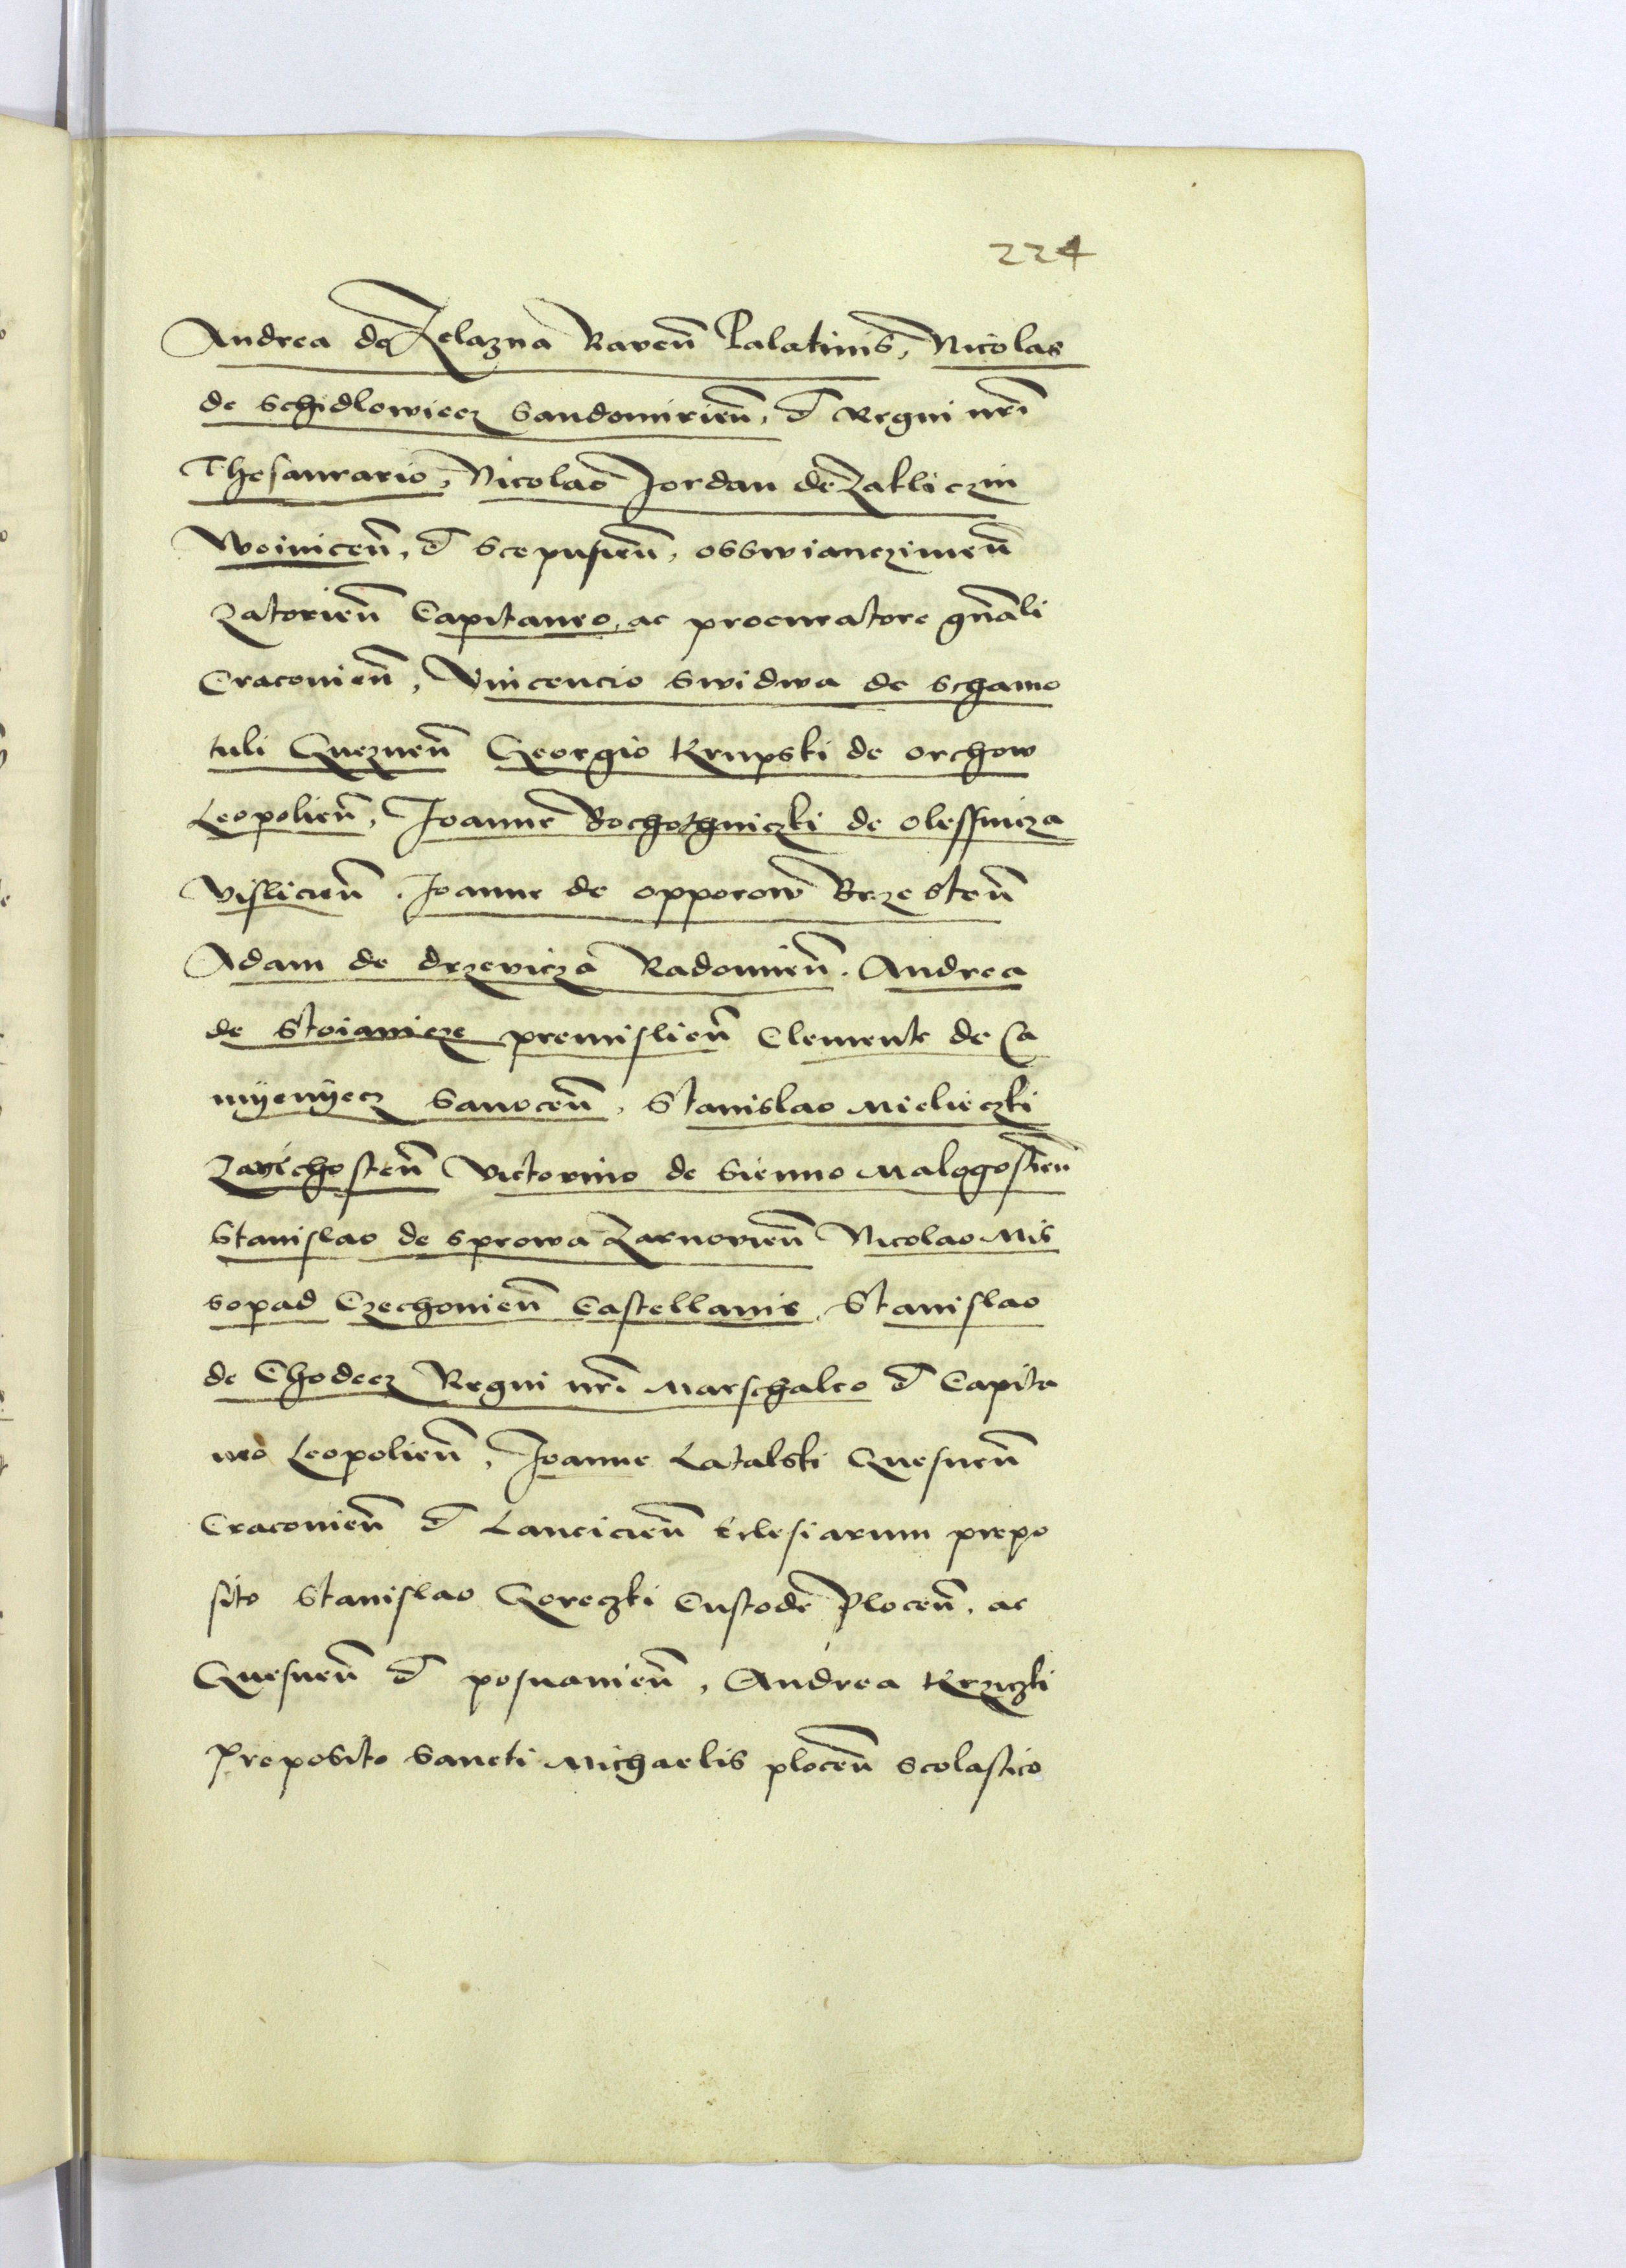 224
Andrea de Zelazna Raveñ Palatinis, Nicolao
de Schidlowiecz Sandomirieñ, et Regni nrī
Thesaurario, Nicolao Jordan de Zakliczin
Woiniceñ, et Scepusieñ, osswianczimeñ
Zatorieñ Capitaneo, ac procuratore gñali
Cracovieñ, Vincencio Swidwa de Schamo
tuli Gnezneñ Georgio Krupski de orchow
Leopolieñ, Joanne Bochothniczki de olessnicza
Vislicieñ, Joanne de opporow Brzesteñ
Adam de drzevicza Radomieñ. Andrea
de Stoiamicze premislieñ Clemente de Ca
myenyecz Sanoceñ, Stanislao Mieliczki
Zavichosteñ Victorino de Sienno Malogostieñ
Stanislao de Sprowa Zarnovieñ Nicolao Mis
sopad Czechovieñ Castellanis, Stanislao
de Chodecz Regni nrī Marschalco et Capita
neo Leopolieñ, Joanne Latalski Gnesneñ
Cracovieñ et Lancicieñ Eclesiarum prepo
sito Stanislao Goreczki Custode Ploceñ, ac
Gnesneñ et posnanieñ, Andrea Krziczki
Preposito Sancti Michaelis ploceñ scolastico